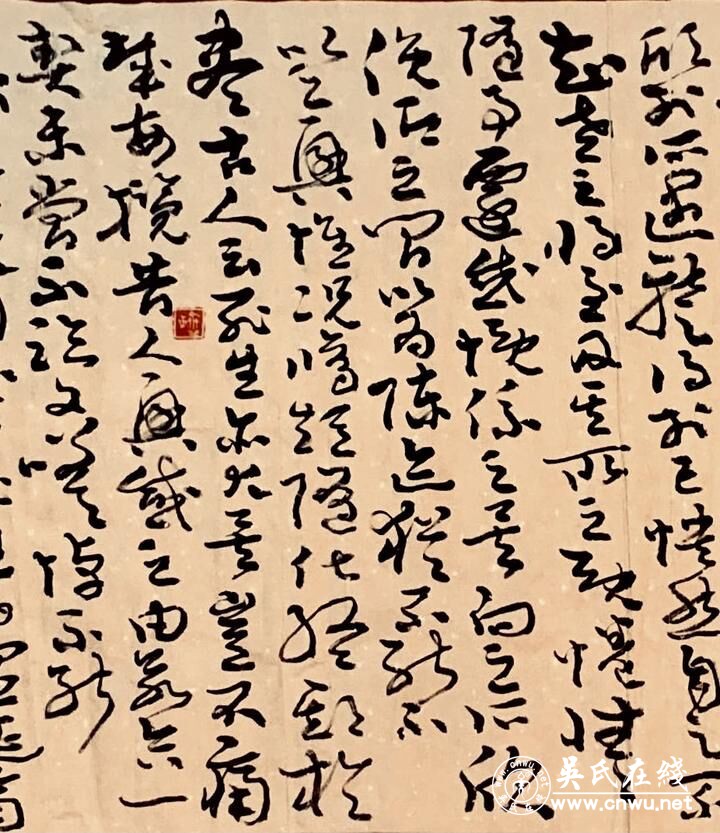 欣於所遇暫得於己怏然自足不
知老之將至及其所之既惓情
隨事遷感慨係之矣向之所欣
俛仰之間以為陳迹猶不能不
以之興懷況脩短隨化終期於
盡古人云死生亦大矣豈不痛
哉每攬昔人興感之由若合一
契未嘗不臨文嗟悼不能
吳氏在线
www.cnwu.net